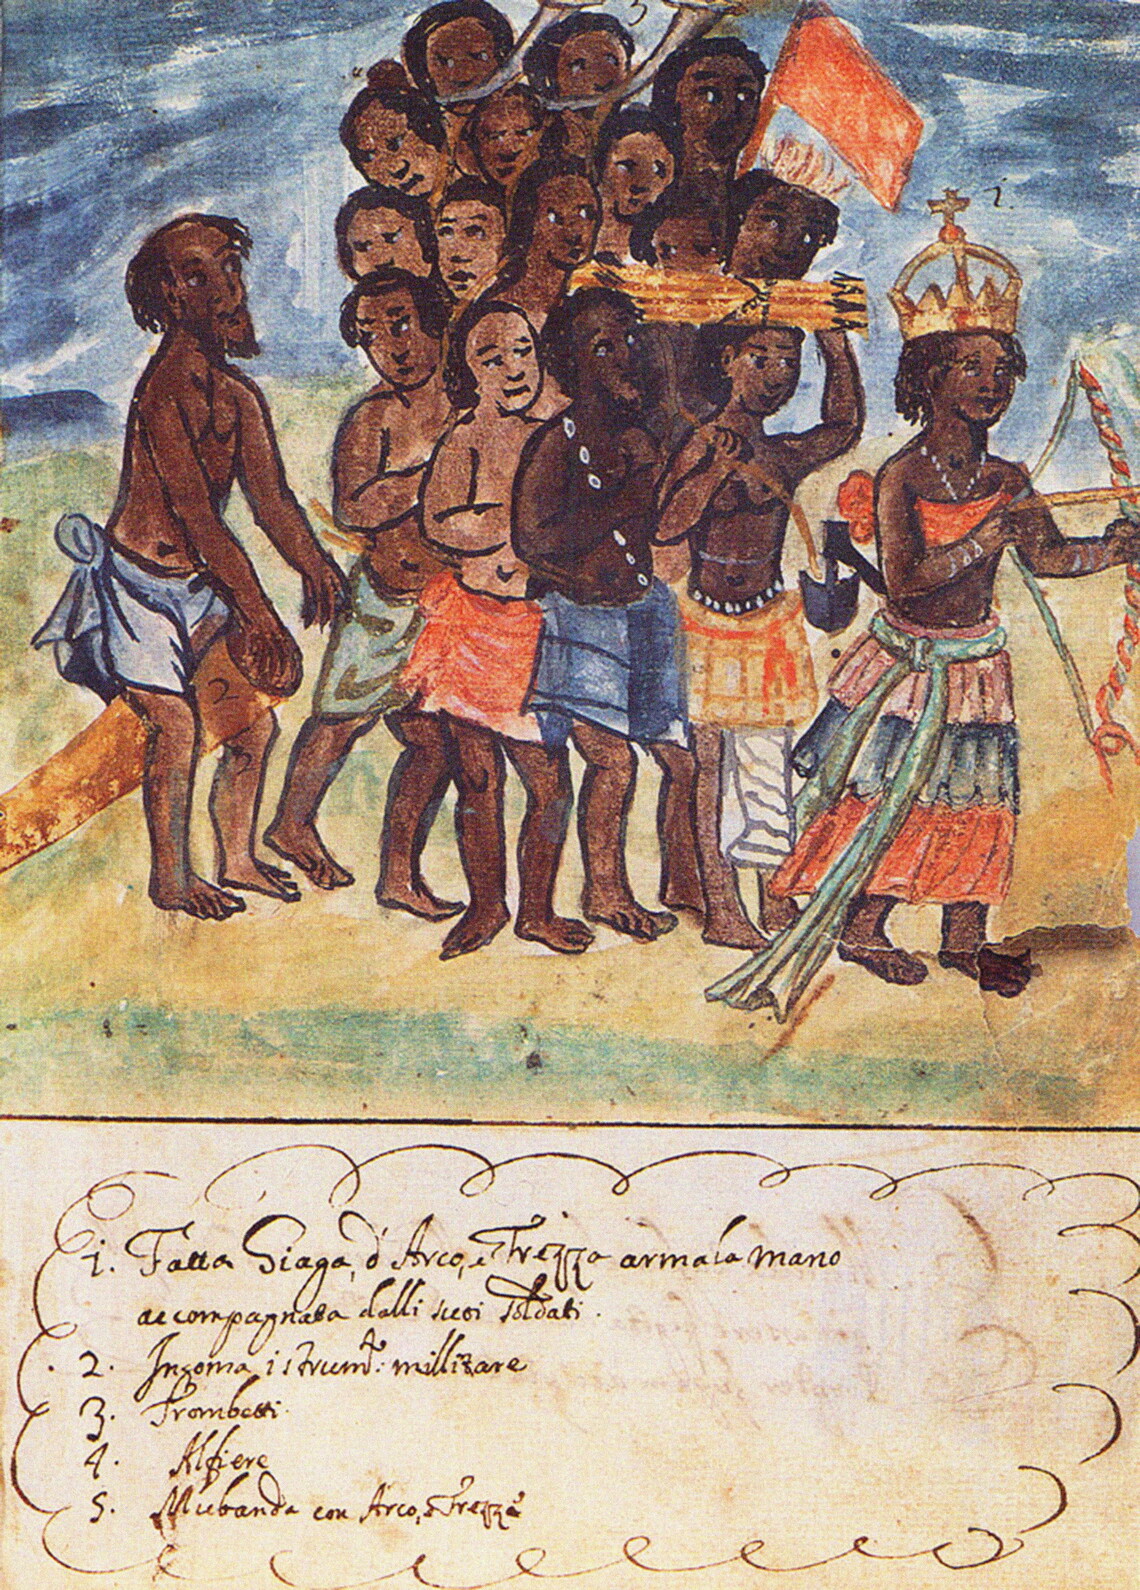 3
1.
2
3
1. Fatta Giaga, d'Arco, e Frezza armata mano
accompagnata dalli suoi soldati.
2. Ingoma istrumto: millitare
3. Trombetti.
4. Alfiere
5. Mubanda con Arco, e Frezze